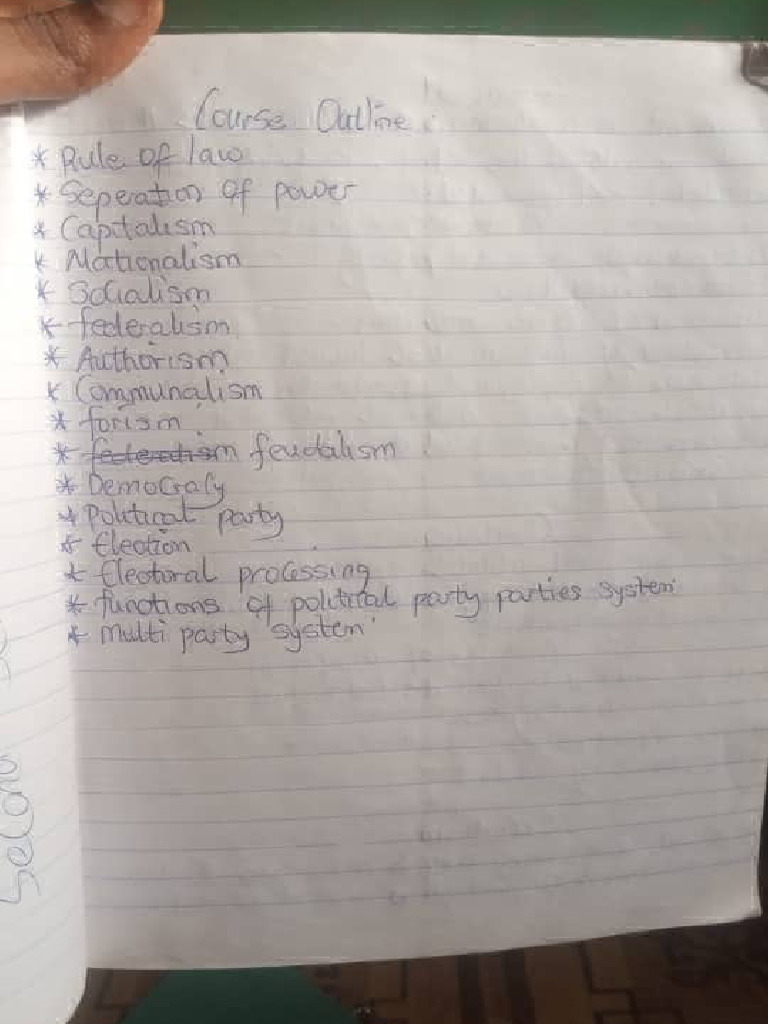 Course Outline
* Rule of law
* Seperation of power
* Capitalism
* Nationalism
* Socialism
* federalism
* Authorism
* Communalism
* forism
* feudalism
* Democracy
* Political party
* Election
* Electoral processing
* functions of political party parties system
* multi party system
Second